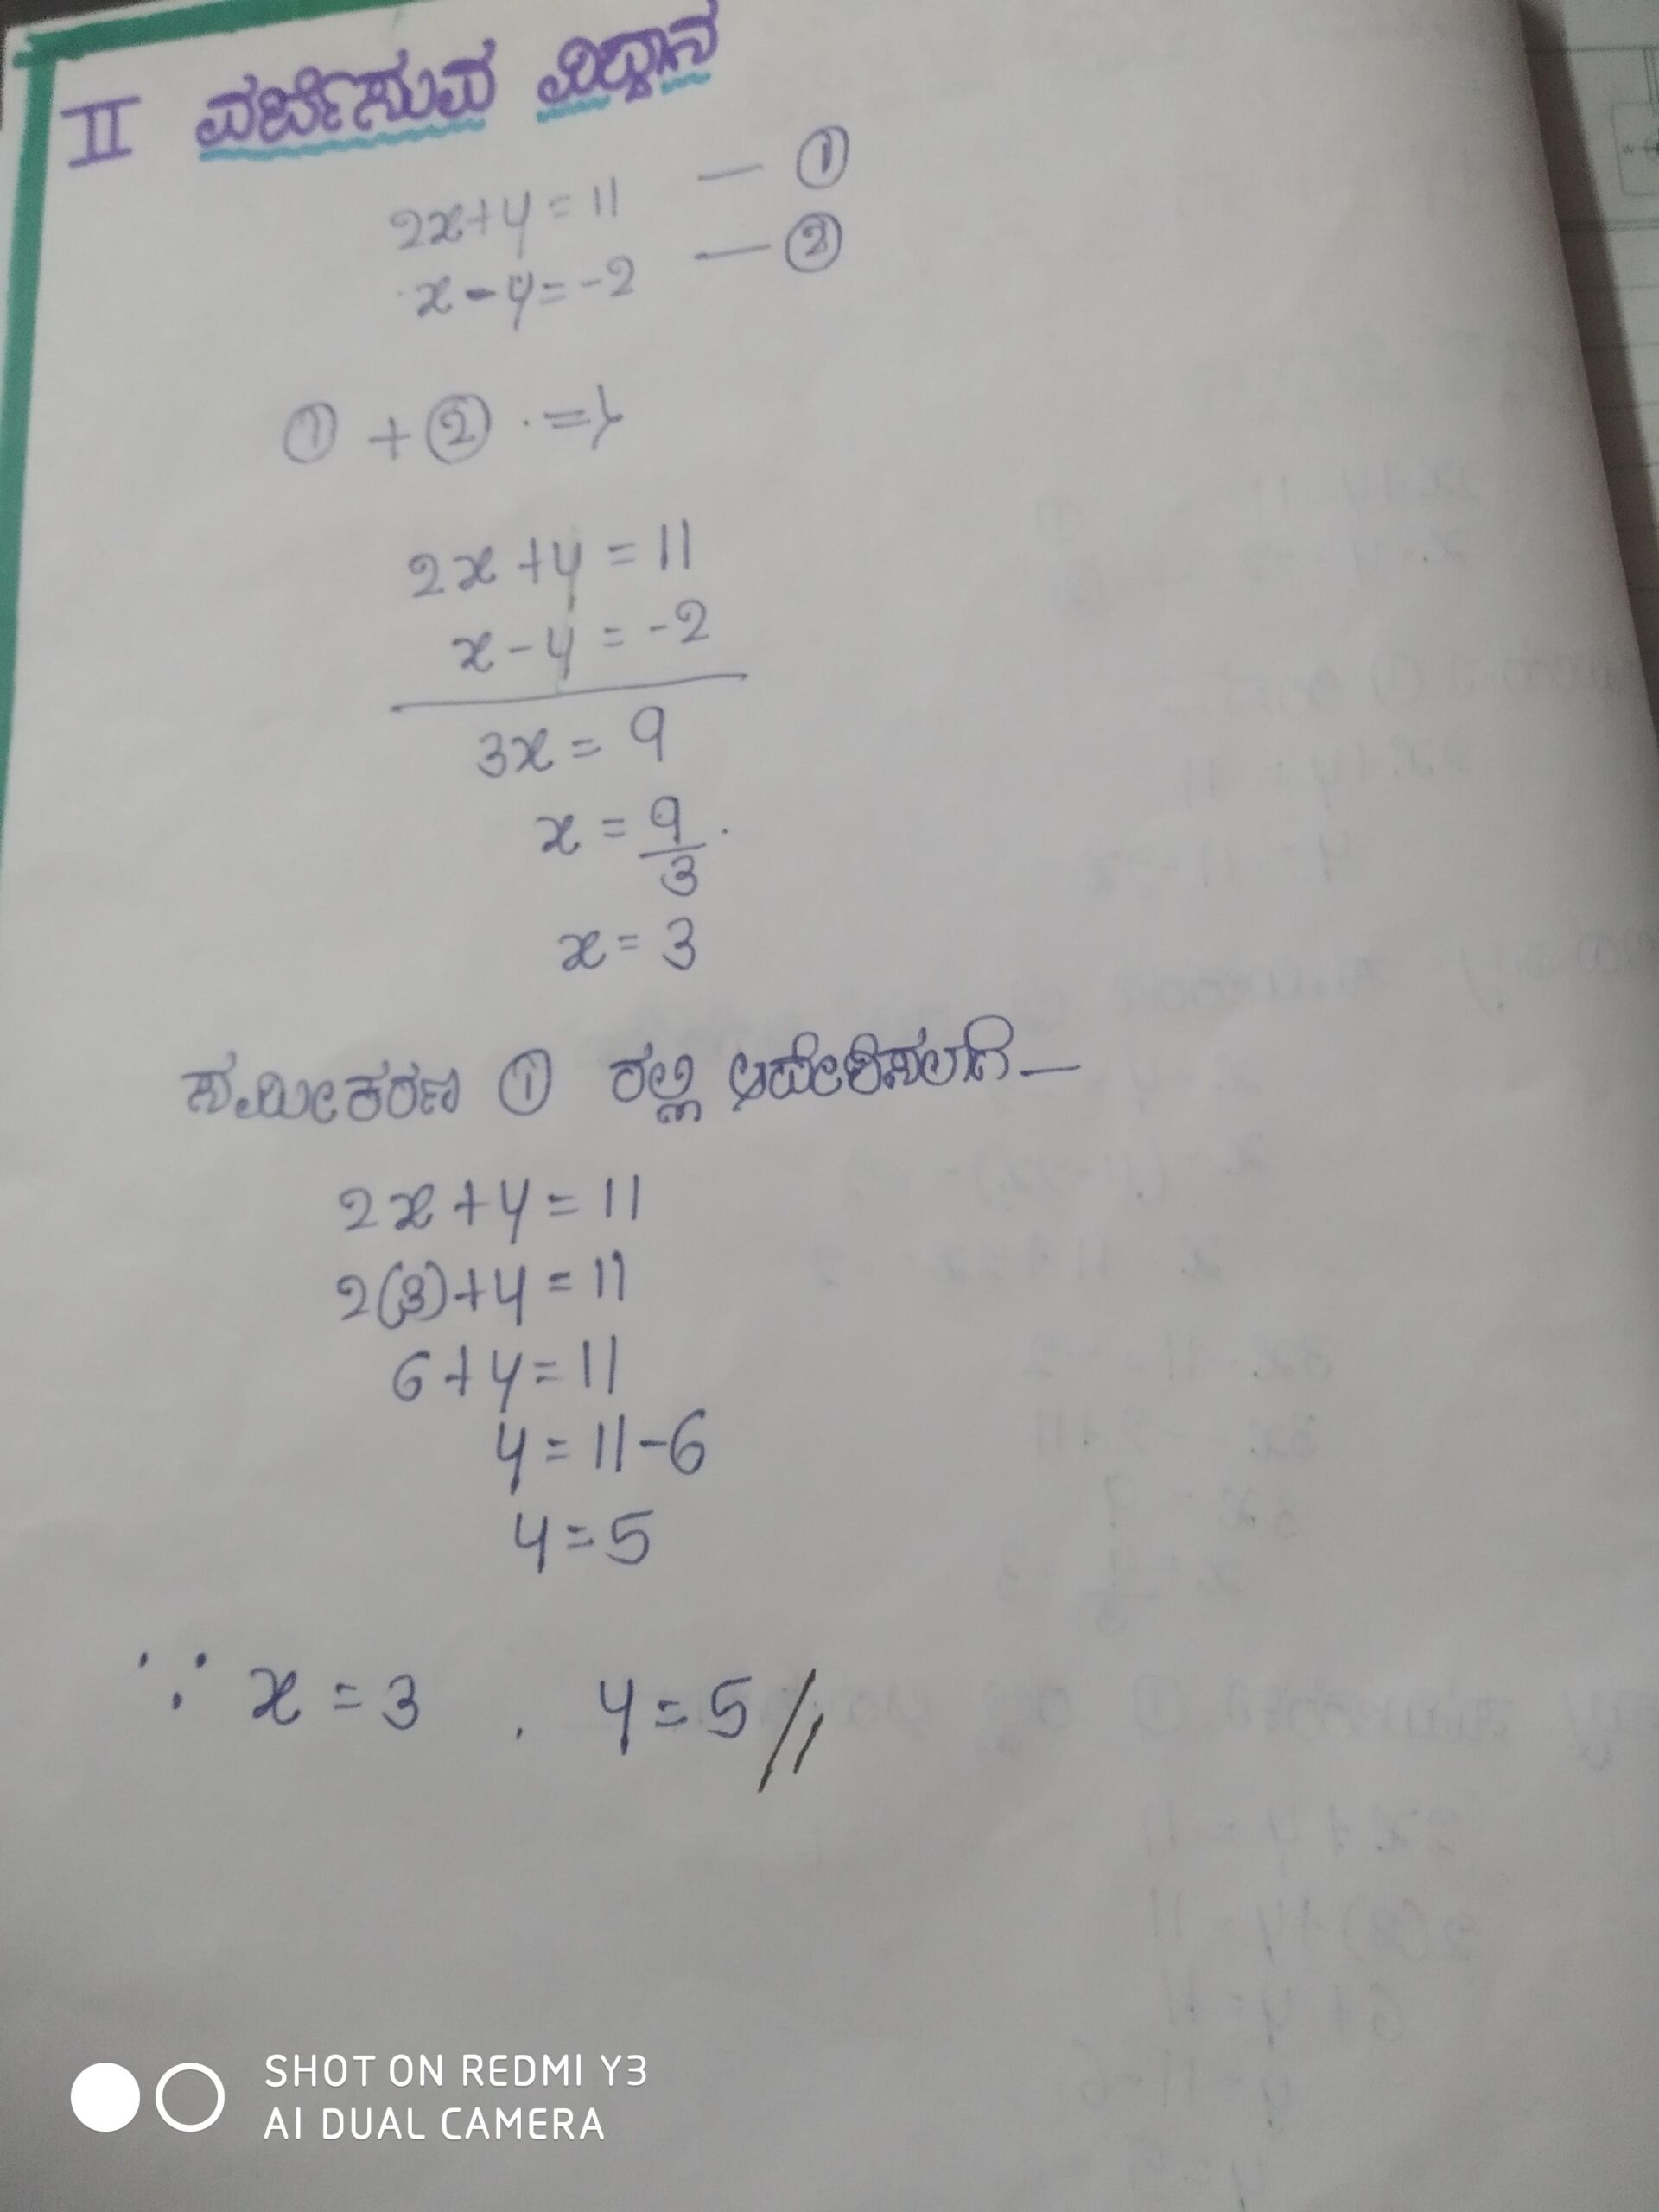 II ವರ್ಜಿಸುವ ವಿಧಾನ
2x+y = 11 — ①
x - y = -2 — ②
① + ② ⇒
2x + y = 11
x - y = -2
3x = 9
x = 9/3
x = 3
ಸಮೀಕರಣ ① ರಲ್ಲಿ ಆದೇಶಿಸಲಾಗಿ —
2x + y = 11
2(3)+y = 11
6+y = 11
y = 11-6
y = 5
∵ x = 3 , y = 5 //
SHOT ON REDMI Y3
AI DUAL CAMERA